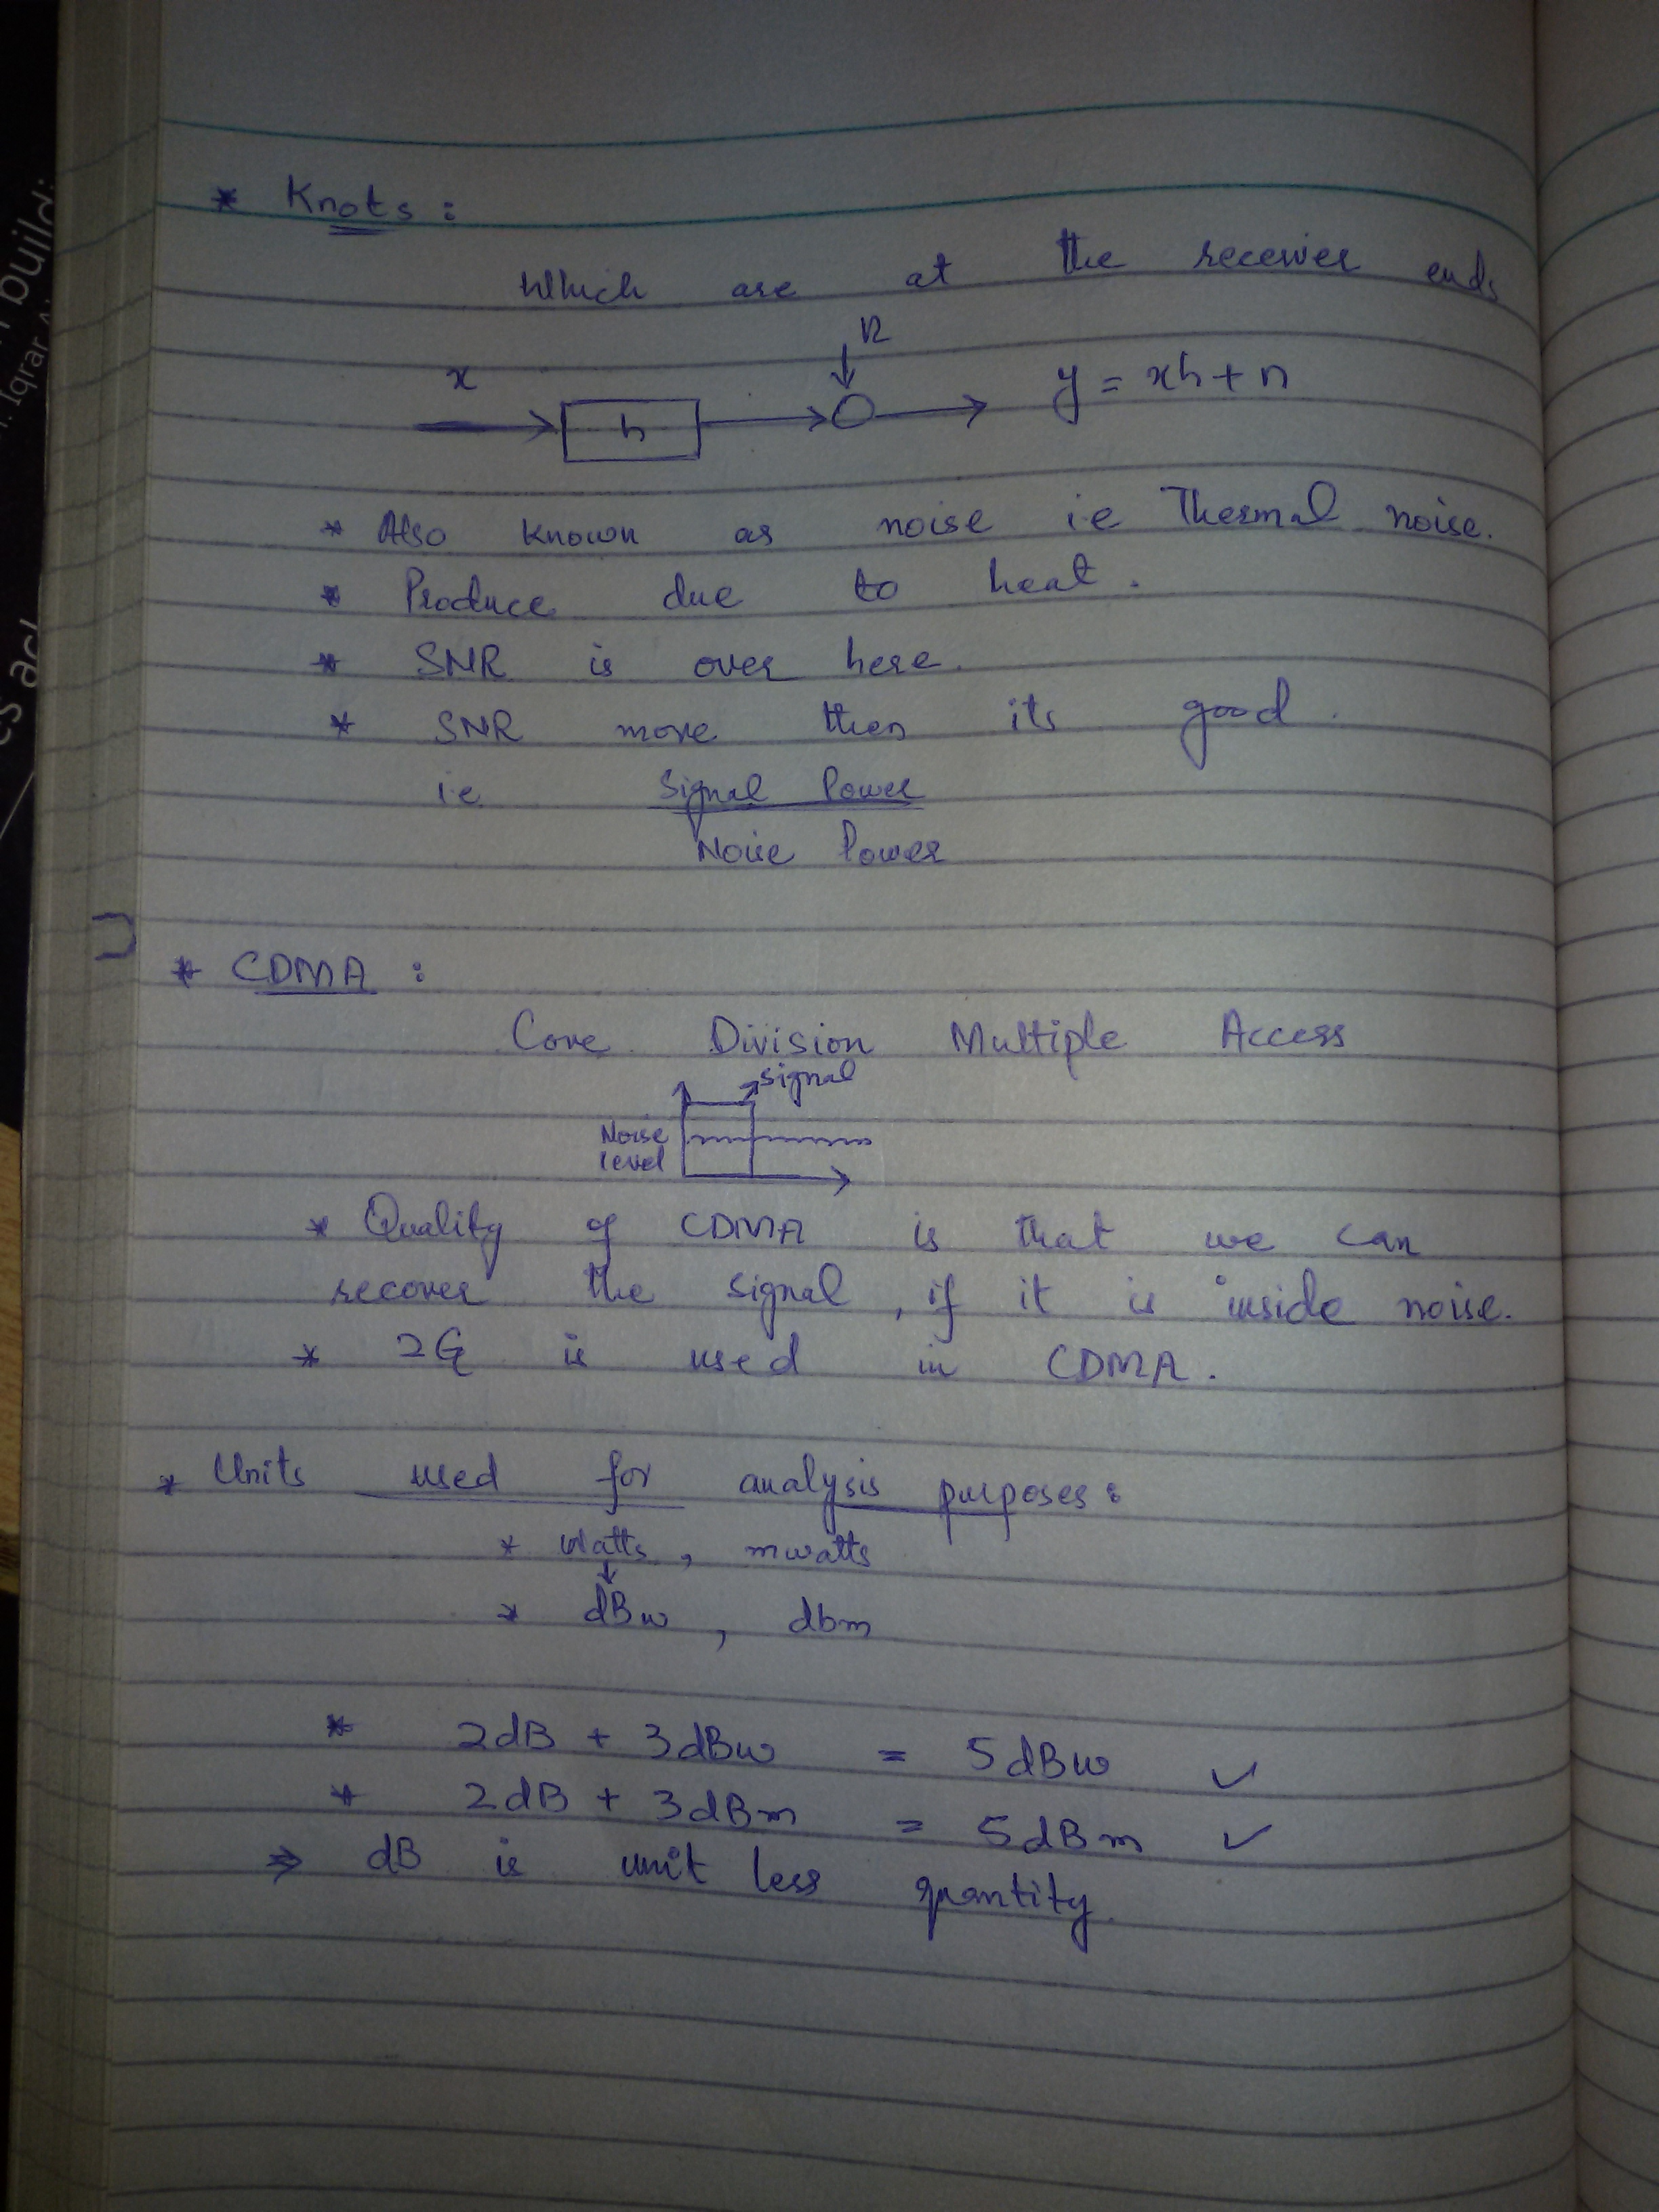 * Knots :
Which are at the receiver ends
n
x
h
y = xh + n
* Also known as noise i.e Thermal noise.
* Produce due to heat.
* SNR is over here.
* SNR more then its good.
i.e Signal Power
Noise Power
* CDMA :
Core Division Multiple Access
signal
Noise
level
* Quality of CDMA is that we can
recover the signal, if it is inside noise.
* 2G is used in CDMA.
* Units used for analysis purposes :
* Watts, mwatts
↓
* dBw, dbm
* 2dB + 3dBw = 5dBw ✓
* 2dB + 3dBm = 5dBm ✓
⇒ dB is unit less quantity.
build:
Iqrar